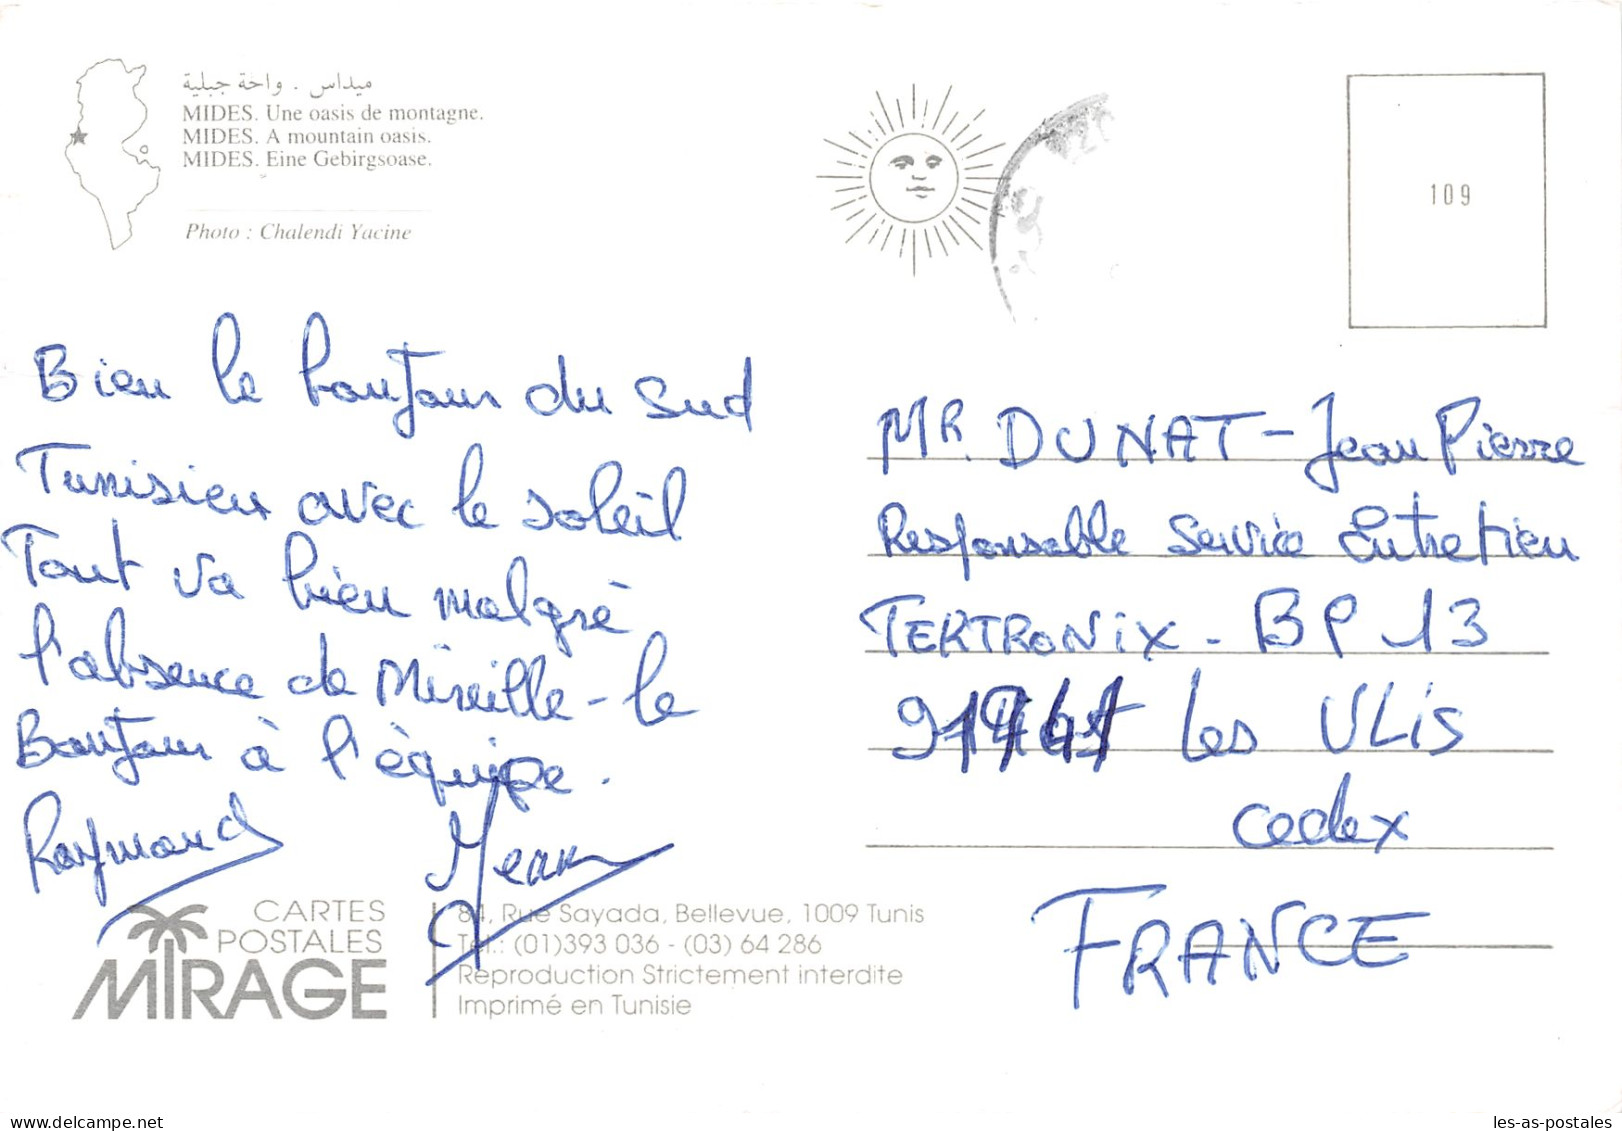 ميداس . واحة جبلية
MIDES. Une oasis de montagne.
MIDES. A mountain oasis.
MIDES. Eine Gebirgsoase.
Photo : Chalendi Yacine
109
Bien le bonjour du Sud
Tunisien avec le soleil
Tout va bien malgré
l'absence de Mireille - le
Bonjour à l'équipe.
Raymond Jean
MR. DUNAT - Jean Pierre
Responsable Service Entretien
TEKTRONIX - BP 13
91941 Les ULIS
cedex
FRANCE
CARTES
POSTALES
MIRAGE
84, Rue Sayada, Bellevue, 1009 Tunis
Tél.: (01)393 036 - (03) 64 286
Reproduction Strictement interdite
Imprimé en Tunisie
les-as-postales